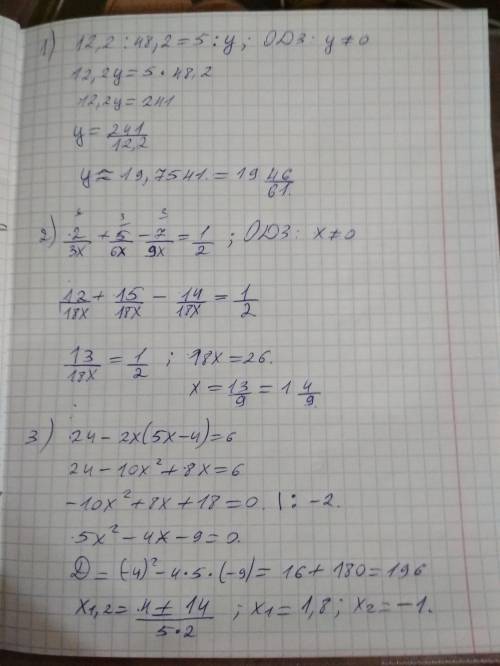 1) 12,2 : 48,2 = 5 : y ; ОДЗ: y ≠ 0
12,2y = 5 · 48,2
12,2y = 241
y = 241/12,2
y ≈ 19,7541. = 19 46/61.
2) 2/3x + 5/6x - 7/9x = 1/2 ; ОДЗ: x ≠ 0
12/18x + 15/18x - 14/18x = 1/2
13/18x = 1/2 ; 18x = 26.
x = 13/9 = 1 4/9.
3) 24 - 2x(5x-4) = 6
24 - 10x² + 8x = 6
-10x² + 8x + 18 = 0. |: -2.
5x² - 4x - 9 = 0.
D = (-4)² - 4·5·(-9) = 16 + 180 = 196
x1,2 = 4 ± 14 / 5·2 ; x1 = 1,8 ; x2 = -1.